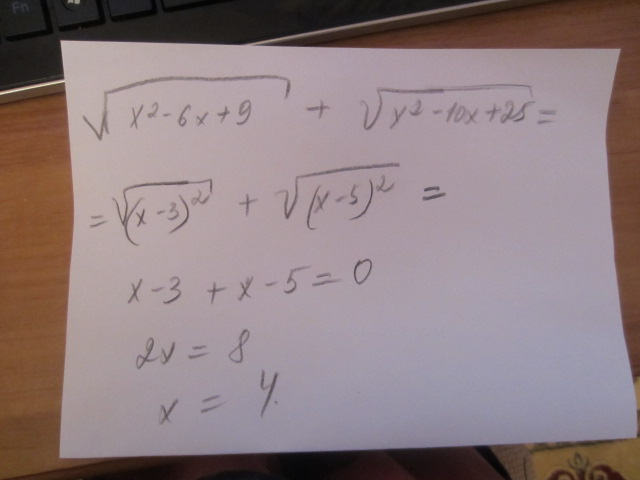 Fn
√(x² - 6x + 9) + √(x² - 10x + 25) =
= √(x - 3)² + √(x - 5)² =
x - 3 + x - 5 = 0
2x = 8
x = 4.